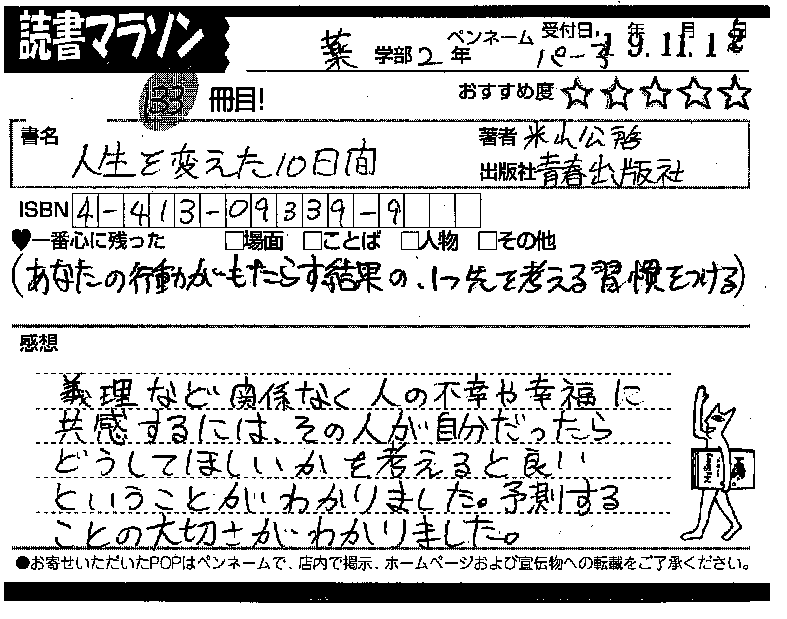 読書マラソン
薬 学部 2 年 ペンネーム パーヲ 受付日. 年 月 日 19.11.12
133 冊目!
おすすめ度 ☆☆☆☆☆
書名 人生を変えた10日間
著者 米山公啓
出版社 青春出版社
ISBN 4-413-09339-9
♥一番心に残った □場面 □ことば □人物 □その他
(あなたの行動がもたらす結果の、1つ先を考える習慣をつける)
感想
義理など関係なく人の不幸や幸福に
共感するには、その人が自分だったら
どうしてほしいかを考えると良い
ということがわかりました。予測する
ことの大切さがわかりました。
●お寄せいただいたPOPはペンネームで、店内で掲示、ホームページおよび宣伝物への転載をご了承ください。